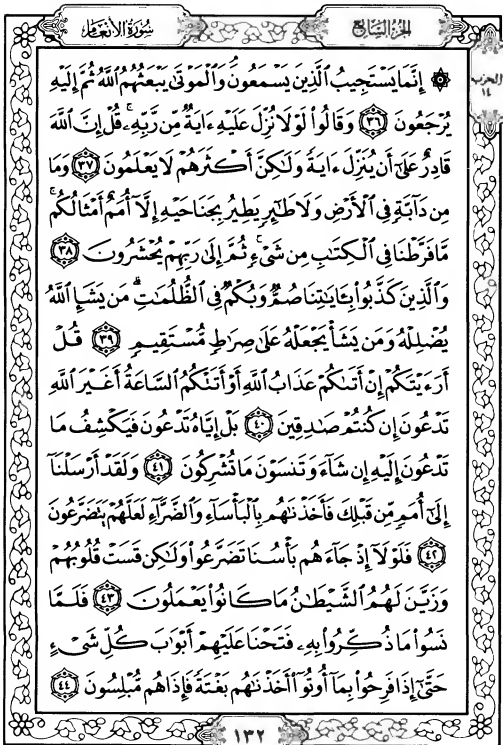 الجزء السابع
سورة الأنعام
الحزب
١٤
۞ إِنَّمَا يَسْتَجِيبُ الَّذِينَ يَسْمَعُونَ ۘ وَالْمَوْتَىٰ يَبْعَثُهُمُ اللَّهُ ثُمَّ إِلَيْهِ
يُرْجَعُونَ ٣٦ وَقَالُوا۟ لَوْلَا نُزِّلَ عَلَيْهِ ءَايَةٌ مِّن رَّبِّهِۦ ۚ قُلْ إِنَّ اللَّهَ
قَادِرٌ عَلَىٰٓ أَن يُنَزِّلَ ءَايَةً وَلَٰكِنَّ أَكْثَرَهُمْ لَا يَعْلَمُونَ ٣٧ وَمَا
مِن دَآبَّةٍ فِي الْأَرْضِ وَلَا طَٰٓئِرٍ يَطِيرُ بِجَنَاحَيْهِ إِلَّآ أُمَمٌ أَمْثَالُكُم ۚ
مَّا فَرَّطْنَا فِي الْكِتَٰبِ مِن شَىْءٍ ۚ ثُمَّ إِلَىٰ رَبِّهِمْ يُحْشَرُونَ ٣٨
وَالَّذِينَ كَذَّبُوا۟ بِـَٔايَٰتِنَا صُمٌّ وَبُكْمٌ فِي الظُّلُمَٰتِ ۗ مَن يَشَإِ اللَّهُ
يُضْلِلْهُ وَمَن يَشَأْ يَجْعَلْهُ عَلَىٰ صِرَٰطٍ مُّسْتَقِيمٍ ٣٩ قُلْ
أَرَءَيْتَكُمْ إِنْ أَتَىٰكُمْ عَذَابُ اللَّهِ أَوْ أَتَتْكُمُ السَّاعَةُ أَغَيْرَ اللَّهِ
تَدْعُونَ إِن كُنتُمْ صَٰدِقِينَ ٤٠ بَلْ إِيَّاهُ تَدْعُونَ فَيَكْشِفُ مَا
تَدْعُونَ إِلَيْهِ إِن شَآءَ وَتَنسَوْنَ مَا تُشْرِكُونَ ٤١ وَلَقَدْ أَرْسَلْنَآ
إِلَىٰٓ أُمَمٍ مِّن قَبْلِكَ فَأَخَذْنَٰهُم بِالْبَأْسَآءِ وَالضَّرَّآءِ لَعَلَّهُمْ يَتَضَرَّعُونَ
٤٢ فَلَوْلَآ إِذْ جَآءَهُم بَأْسُنَا تَضَرَّعُوا۟ وَلَٰكِن قَسَتْ قُلُوبُهُمْ
وَزَيَّنَ لَهُمُ الشَّيْطَٰنُ مَا كَانُوا۟ يَعْمَلُونَ ٤٣ فَلَمَّا
نَسُوا۟ مَا ذُكِّرُوا۟ بِهِۦ فَتَحْنَا عَلَيْهِمْ أَبْوَٰبَ كُلِّ شَىْءٍ
حَتَّىٰٓ إِذَا فَرِحُوا۟ بِمَآ أُوتُوٓا۟ أَخَذْنَٰهُم بَغْتَةً فَإِذَا هُم مُّبْلِسُونَ ٤٤
١٣٢